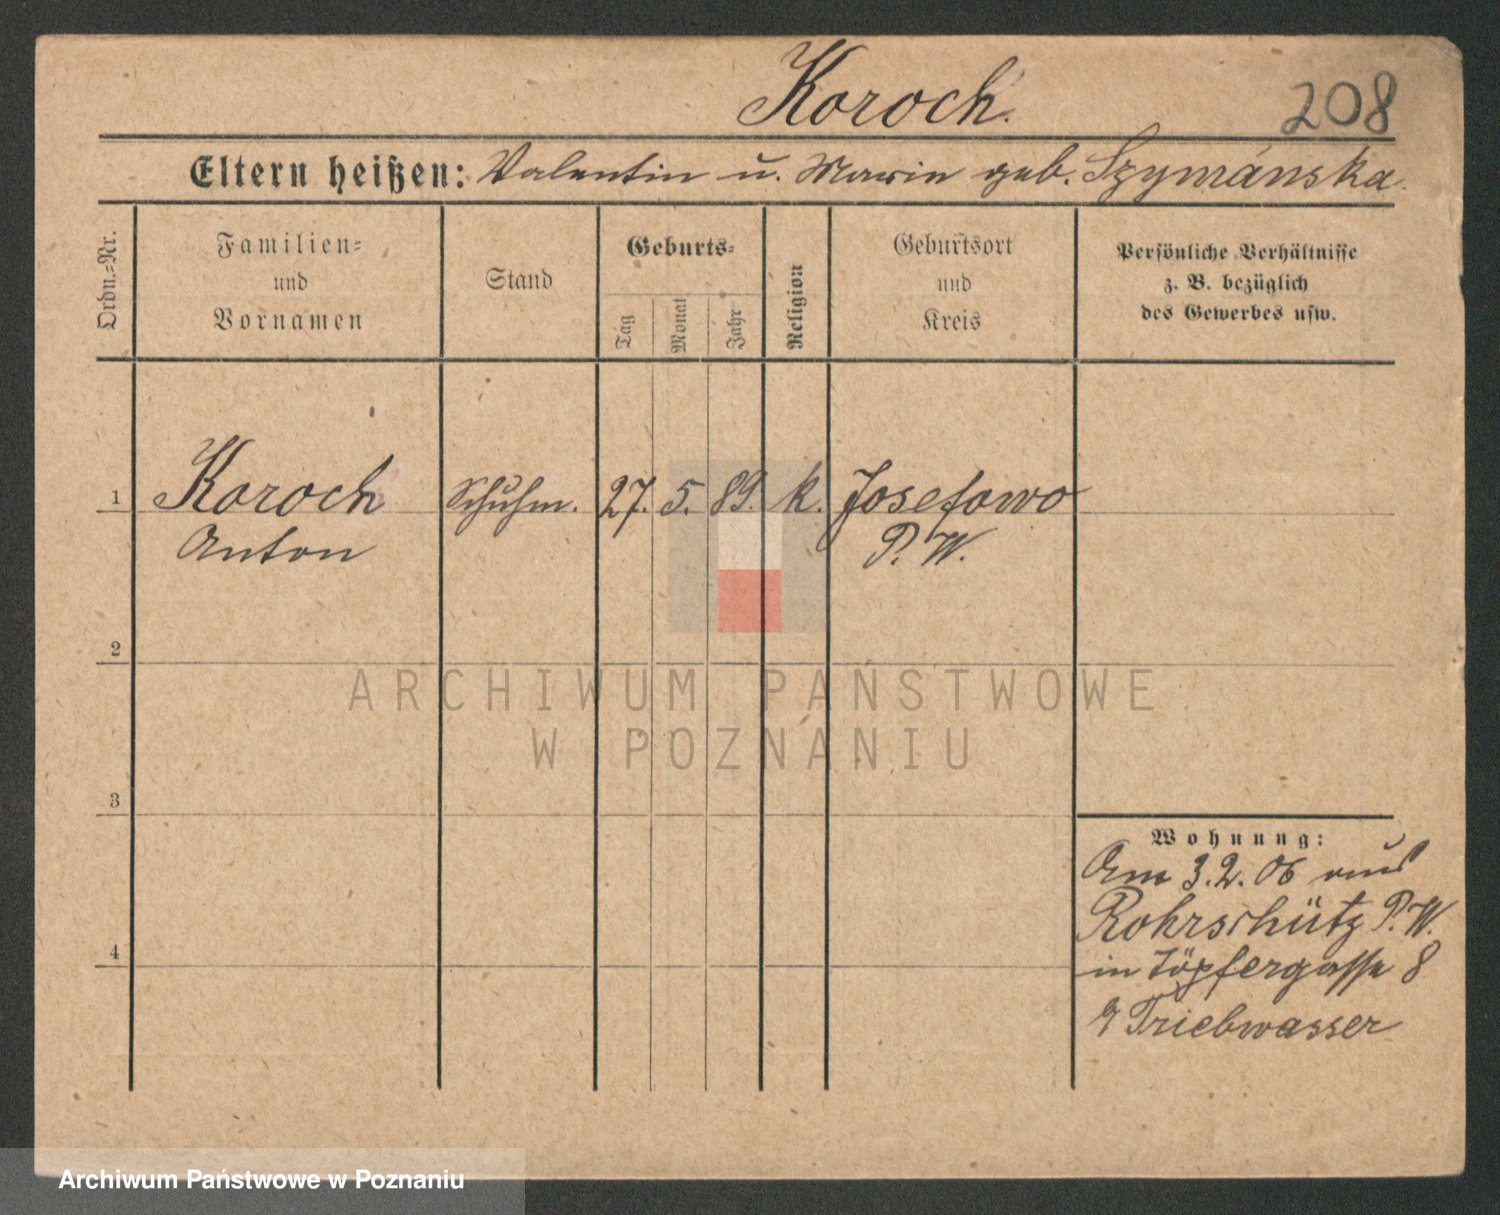 Koroch.
208
Eltern heißen: Valentin u. Marie geb. Szymánska.
Ordn.=Nr.
Familien=
und
Vornamen
Stand
Geburts=
Tag
Monat
Jahr
Religion
Geburtsort
und
Kreis
Persönliche Verhältnisse
z. B. bezüglich
des Gewerbes usw.
1 Koroch Schuhm. 27. 5. 89. k. Josefowo
Anton P. W.
2
3
4
Wohnung:
Am 3.2.06 aus
Rohrschütz P. W.
in Töpfergasse 8
Triebwasser
ARCHIWUM PAŃSTWOWE
W POZNANIU
Archiwum Państwowe w Poznaniu